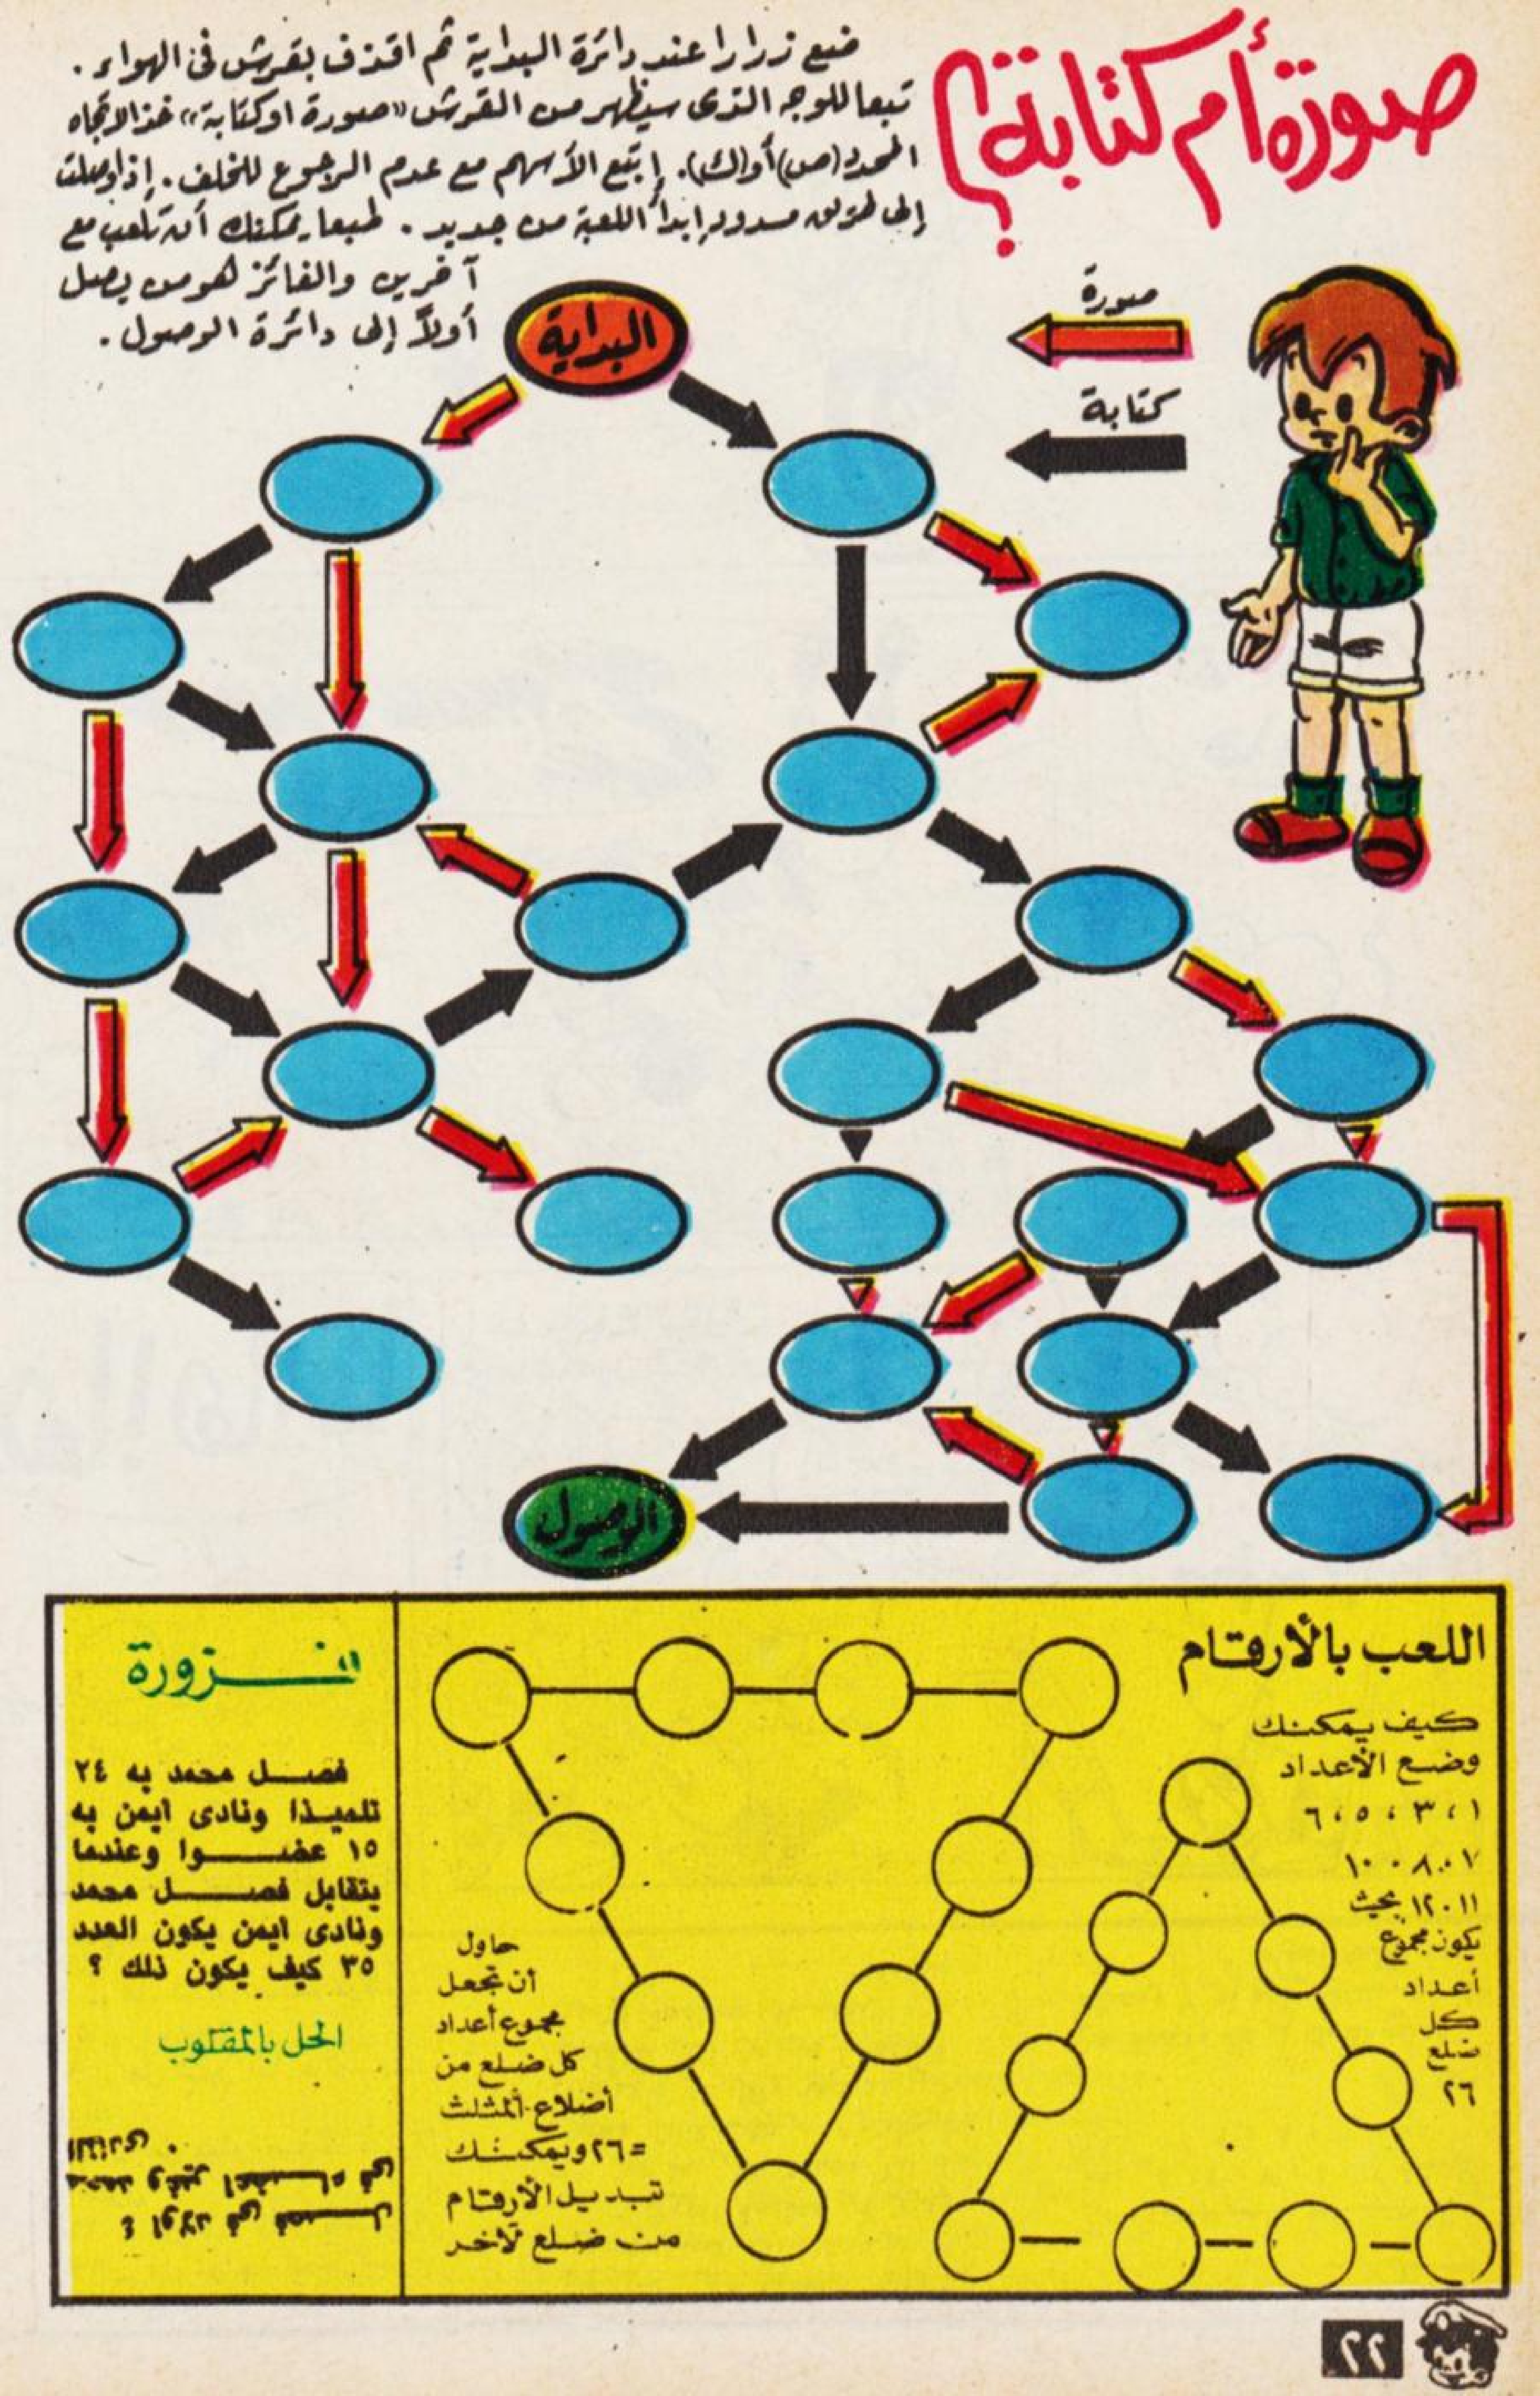 صورة أم كتابة؟
ضع زرارا عند دائرة البداية ثم اقذف بقرش فى الهواء .
تبعا للوجه الذى سيظهر من القرش «صورة او كتابة» خذ الاتجاه
المحدد (ص) أو (ك) . إتبع الأسهم مع عدم الرجوع للخلف . إذا وصلت
إلى طريق مسدود إبدأ اللعبة من جديد . طبعا يمكنك أن تلعب مع
آخرين والفائز هو من يصل
أولاً إلى دائرة الوصول .
صورة
كتابة
البداية
الوصول
اللعب بالأرقام
كيف يمكنك
وضع الأعداد
١ ، ٣ ، ٥ ، ٦
٧ . ٨ . ١٠
١١ . ١٢ بحيث
يكون مجموع
أعداد
كل
ضلع
٢٦
حاول
أن تجعل
مجموع أعداد
كل ضلع من
أضلاع المثلث
= ٢٦ ويمكنك
تبديل الأرقام
من ضلع لآخر
فـــزورة
فصل محمد به ٢٤
تلميذا ونادى ايمن به
١٥ عضوا وعندما
يتقابل فصل محمد
ونادى ايمن يكون العدد
٣٥ كيف يكون ذلك ؟
الحل بالمقلوب
٤ اولاد فى فصل
محمد وهم اعضاء فى
النادى .
٢٢